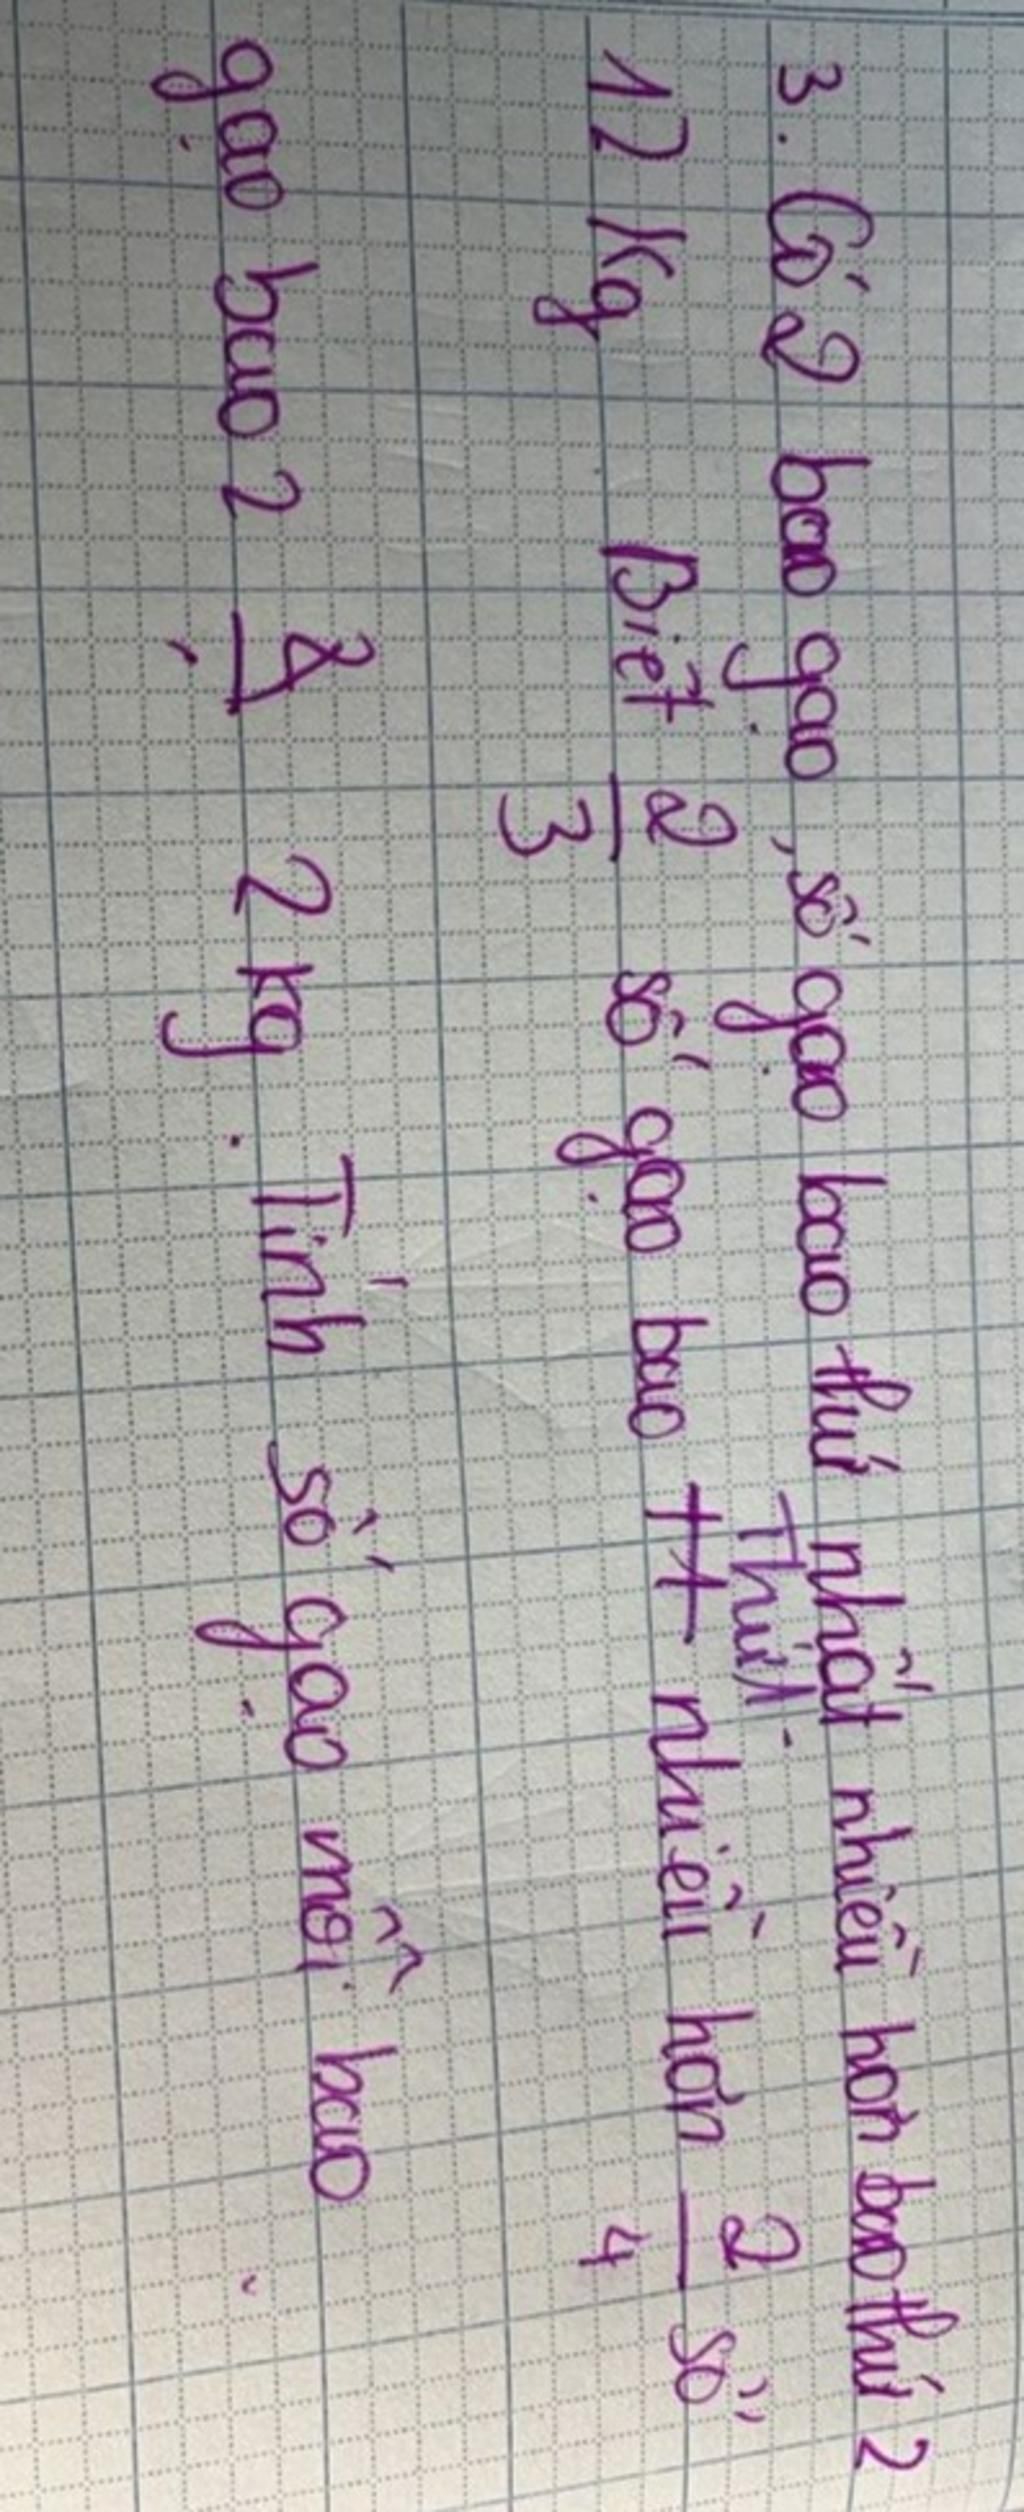 3. Có 2 bao gạo, số gạo bao thứ nhất nhiều hơn bao thứ 2
Thứ 1
12 kg Biết 2/3 số gạo bao nhiều hơn 2/4 số
gạo bao 2 2 kg. Tính số gạo mỗi bao